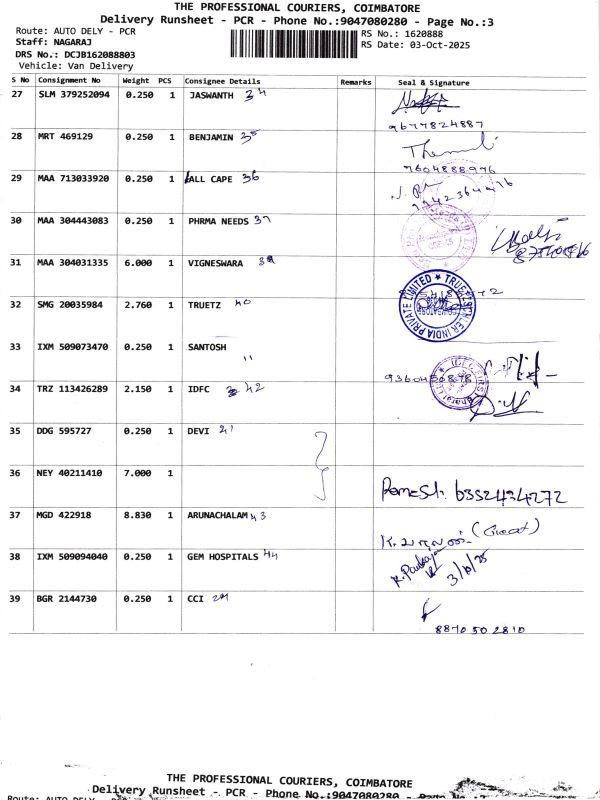 THE PROFESSIONAL COURIERS, COIMBATORE
Delivery Runsheet - PCR - Phone No.:9047080280 - Page No.:3
Route: AUTO DELY - PCR
RS No.: 1620888
Staff: NAGARAJ
RS Date: 03-Oct-2025
DRS No.: DCJB162088803
Vehicle: Van Delivery
S No Consignment No Weight PCS Consignee Details Remarks Seal & Signature
27 SLM 379252094 0.250 1 JASWANTH 34
9677824887
28 MRT 469129 0.250 1 BENJAMIN 35
7604888976
29 MAA 713033920 0.250 1 ALL CAPE 36
30 MAA 304443083 0.250 1 PHRMA NEEDS 37
31 MAA 304031335 6.000 1 VIGNESWARA 39
32 SMG 20035984 2.760 1 TRUETZ 40
33 IXM 509073470 0.250 1 SANTOSH "
34 TRZ 113426289 2.150 1 IDFC 42
35 DDG 595727 0.250 1 DEVI 41
36 NEY 40211410 7.000 1
Ramesh. 6352434272
37 MGD 422918 8.830 1 ARUNACHALAM 43
38 IXM 509094040 0.250 1 GEM HOSPITALS 44
3/10/25
39 BGR 2144730 0.250 1 CCI
8870502810
THE PROFESSIONAL COURIERS, COIMBATORE
Delivery Runsheet - PCR - Phone No.:9047080280 - Page No.:
Route: AUTO DELY - PCR